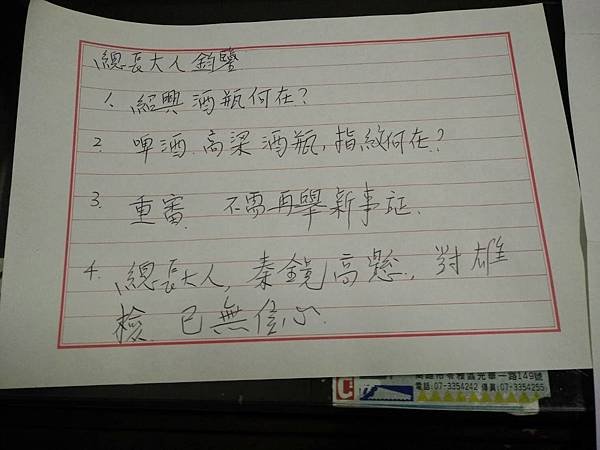 總長大人鈞鑒
1. 紹興酒瓶何在?
2. 啤酒.高梁酒瓶,指紋何在?
3. 重審.不需再舉新事証.
4. 總長大人,秦鏡高懸,對雄
檢已無信心.
高雄市苓雅區光華一路149號
電話:07-3354242 傳真:07-3354255